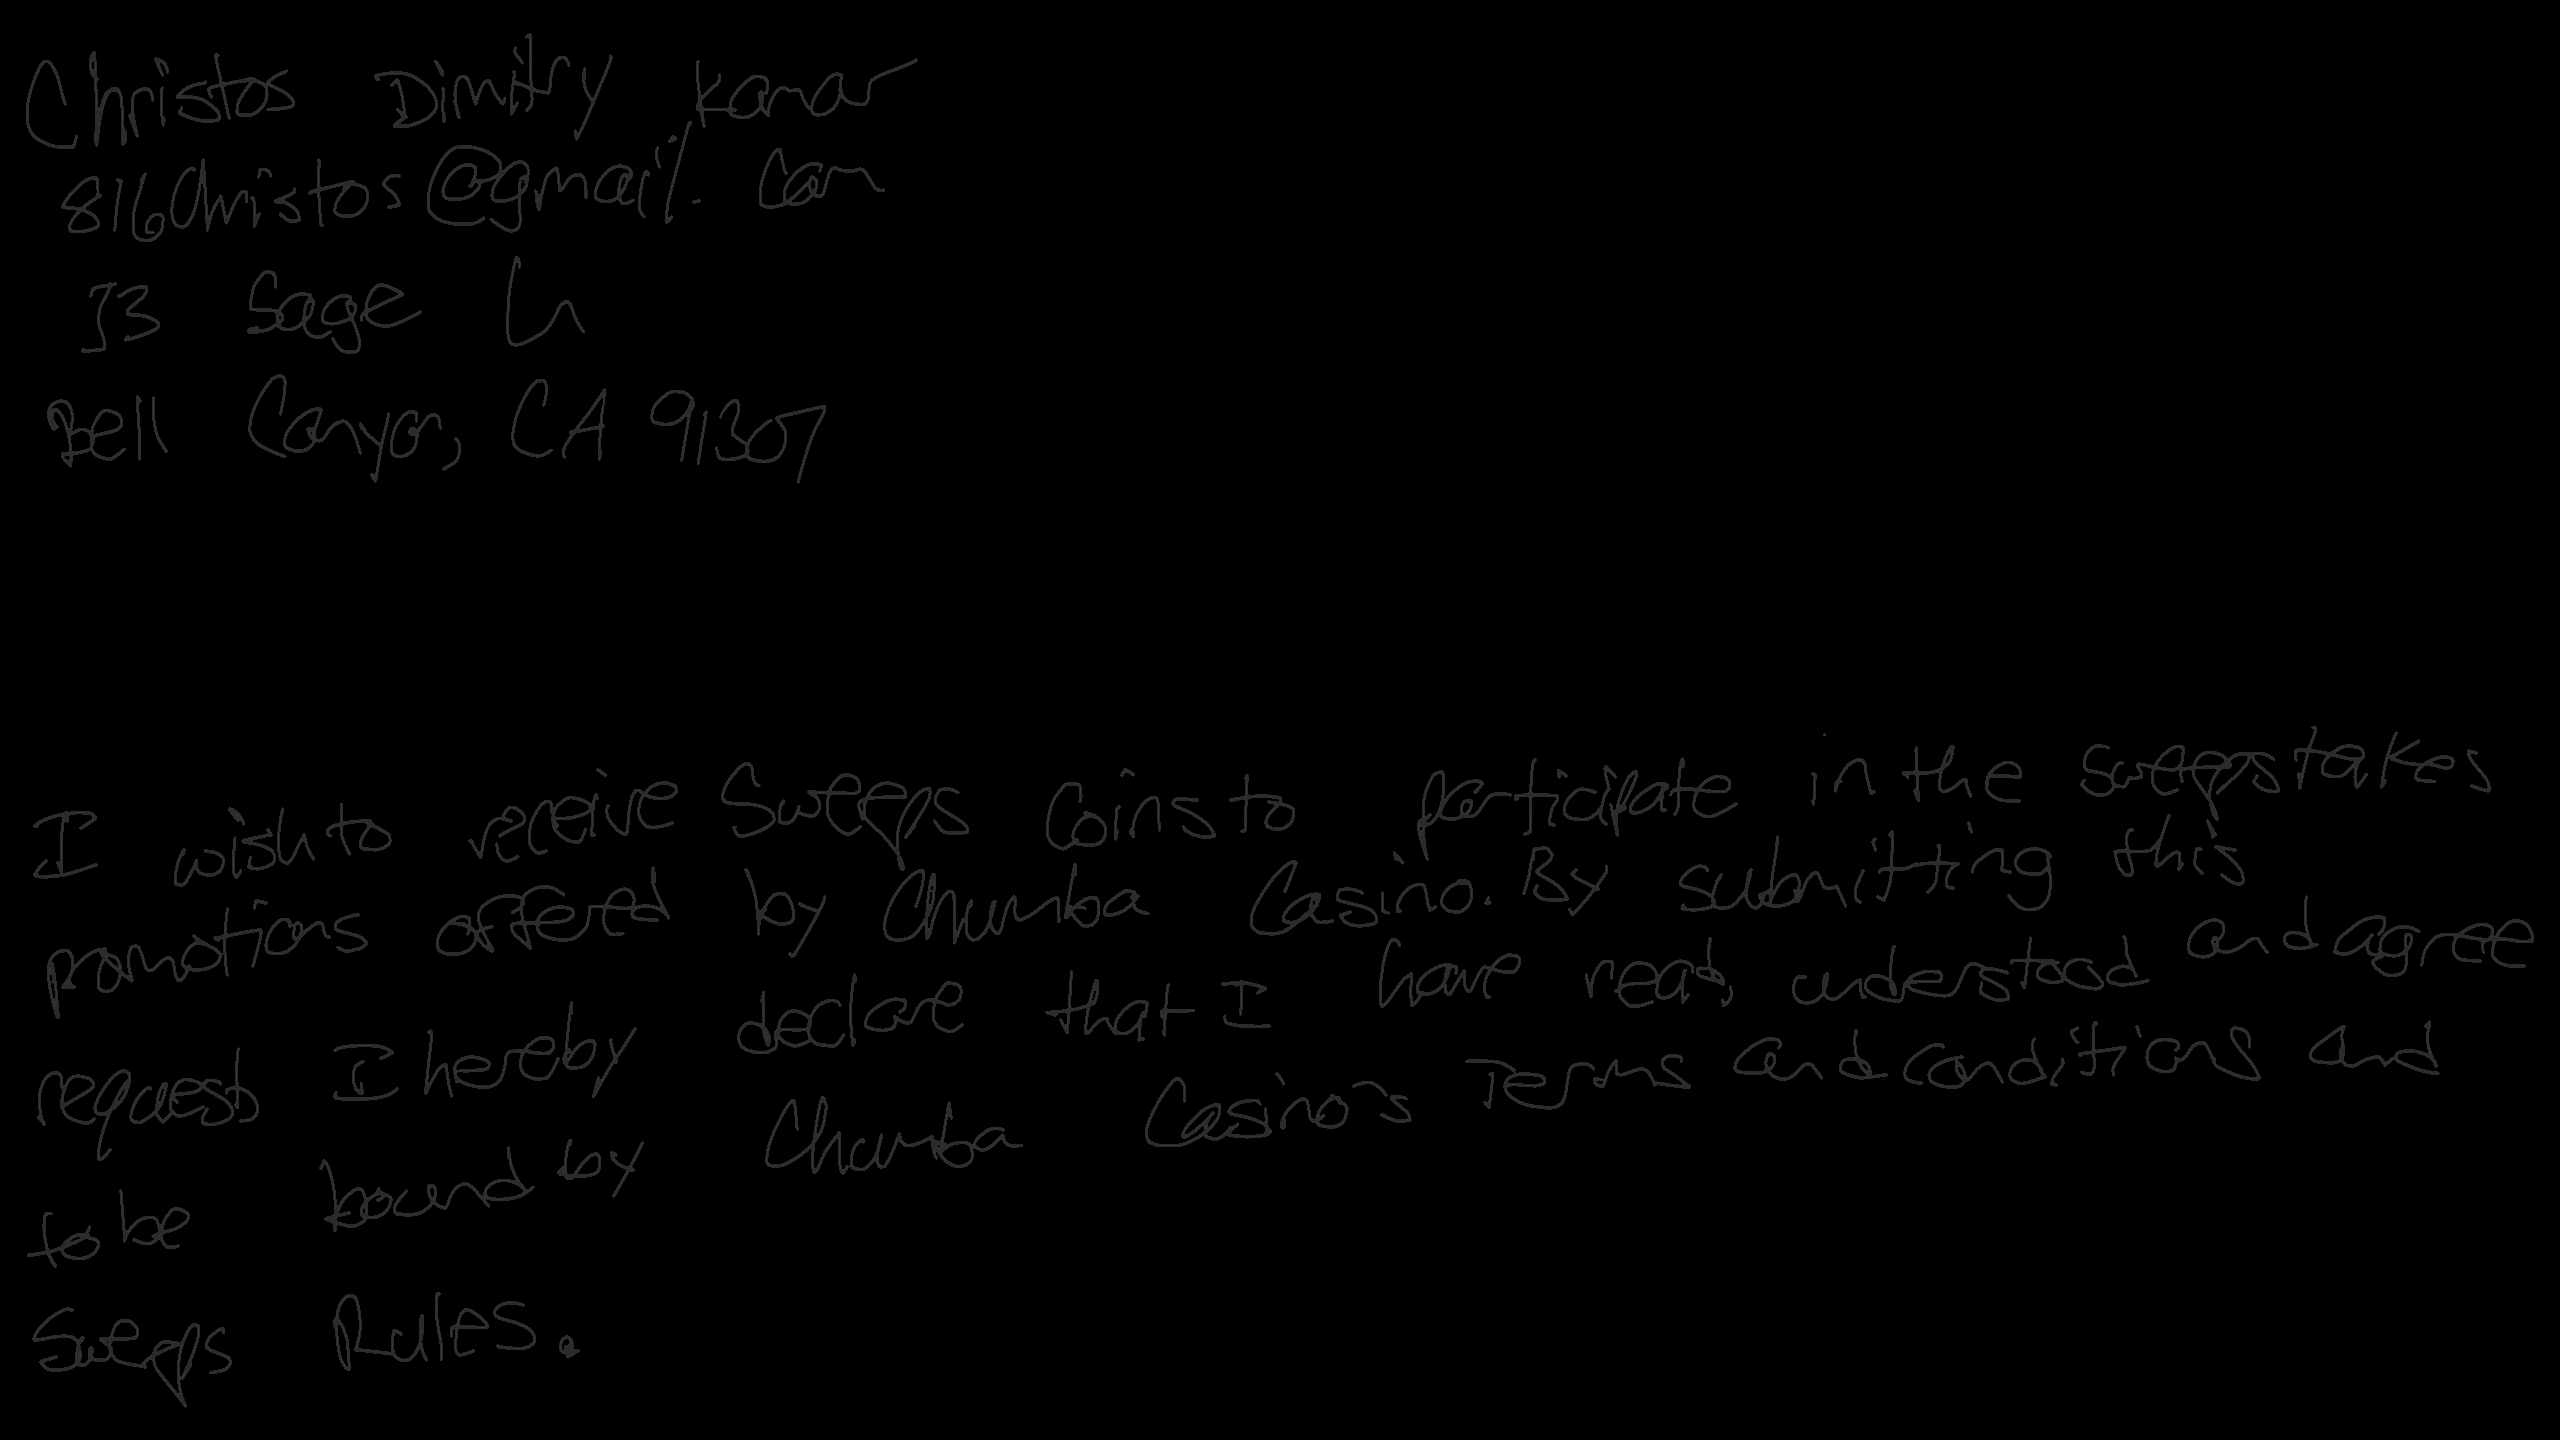 Christos Dimitry Kamar
816Christos@gmail.com
73 Sage Ln
Bell Canyon, CA 91307
I wish to receive Sweeps Coins to participate in the sweepstakes
promotions offered by Chumba Casino. By submitting this
request I hereby declare that I have read, understood and agree
to be bound by Chumba Casino's Terms and conditions and
Sweeps Rules.